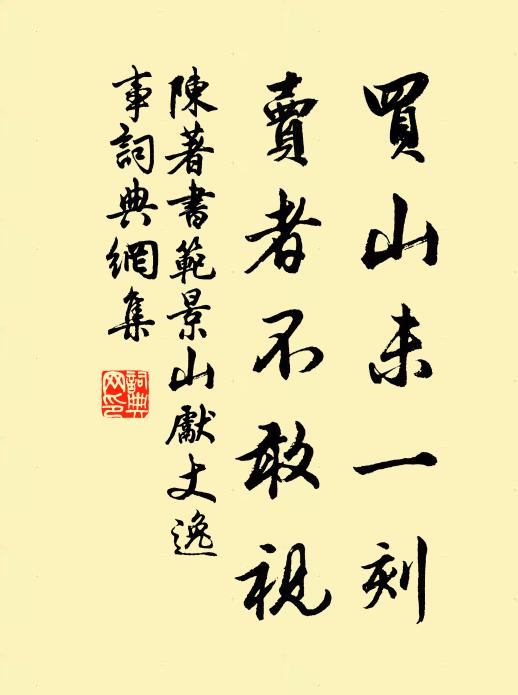 買山未一刻
賣者不敢視
陳著書範景山獻丈逸
事詞典網集
詞典
网印